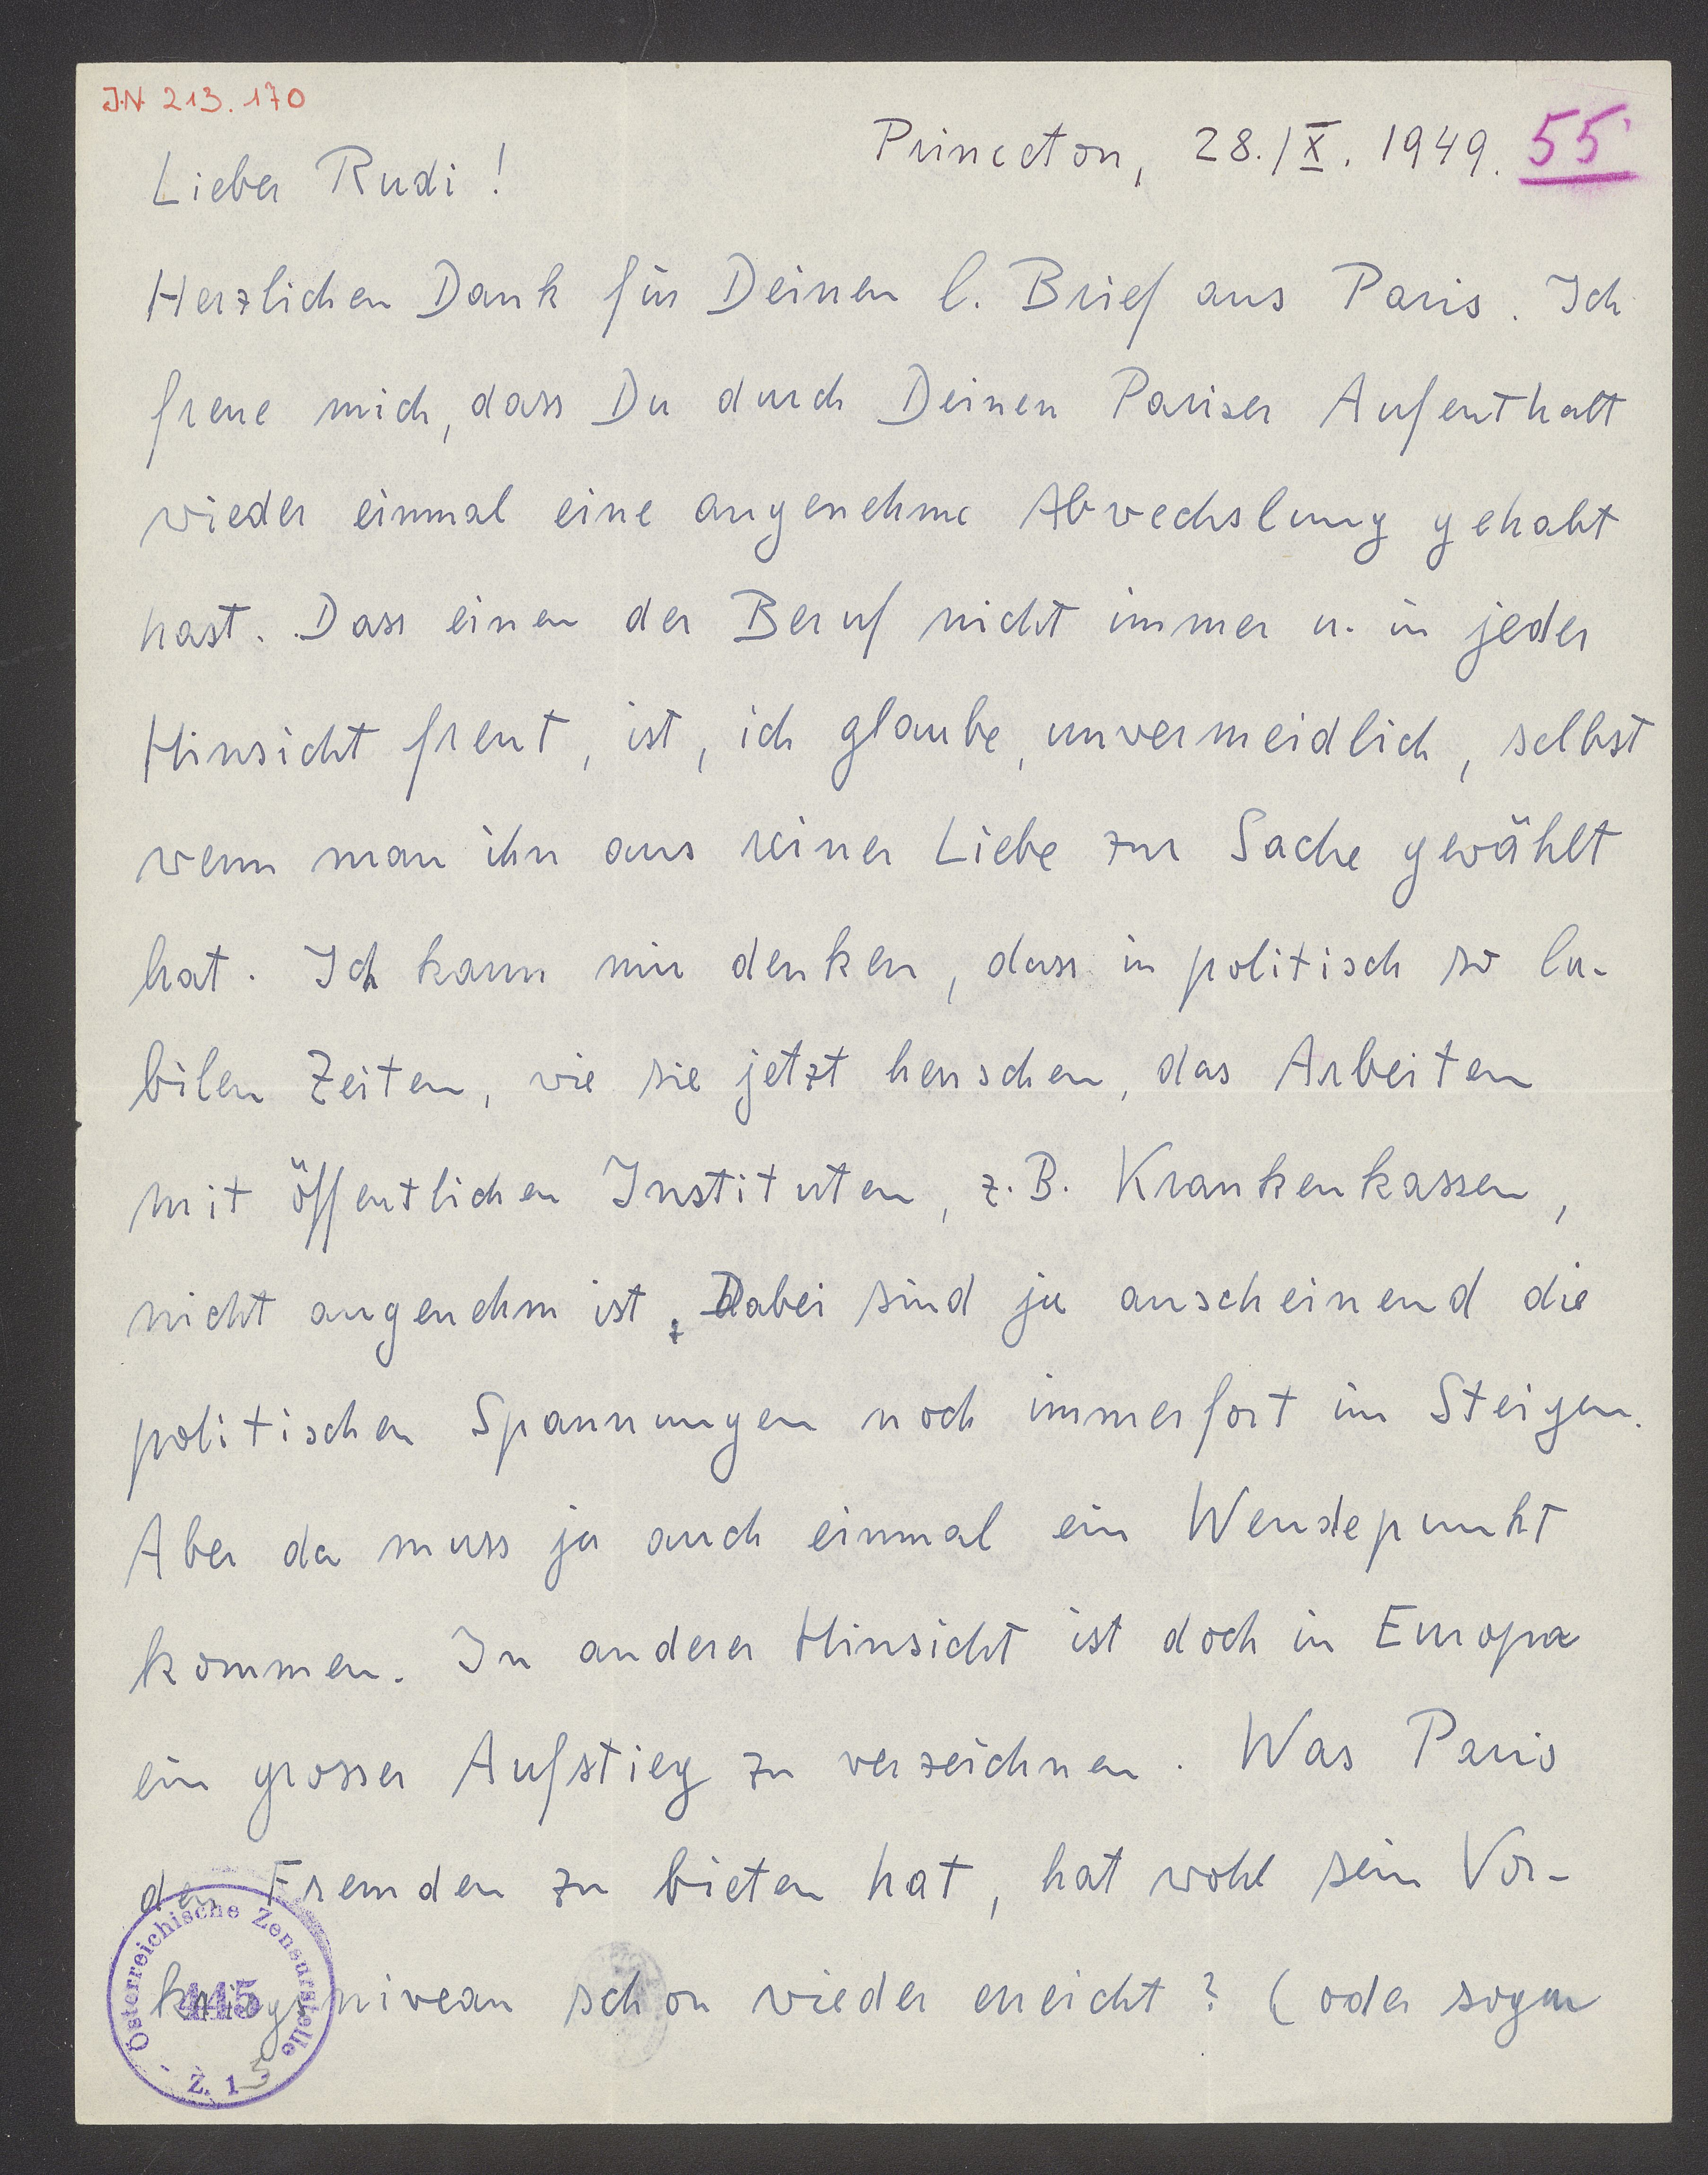 J.N. 213.170
Princeton, 28./X. 1949. 55
Lieber Rudi!
Herzlichen Dank für Deinen l. Brief aus Paris. Ich
freue mich, dass Du durch Deinen Pariser Aufenthalt
wieder einmal eine angenehme Abwechslung gehabt
hast. Dass einen der Beruf nicht immer u. in jeder
Hinsicht freut, ist, ich glaube, unvermeidlich, selbst
wenn man ihn aus reiner Liebe zur Sache gewählt
hat. Ich kann mir denken, dass in politisch so la-
bilen Zeiten, wie sie jetzt herrschen, das Arbeiten
mit öffentlichen Instituten, z.B. Krankenkassen,
nicht angenehm ist. Dabei sind ja anscheinend die
politischen Spannungen noch immerfort im Steigen.
Aber da muss ja auch einmal ein Wendepunkt
kommen. In anderer Hinsicht ist doch in Europa
ein grosser Aufstieg zu verzeichnen. Was Paris
den Fremden zu bieten hat, hat wohl sein Vor-
kriegsniveau schon wieder erreicht? (oder sogar
Österreichische Zensurstelle
445
Z. 1 5